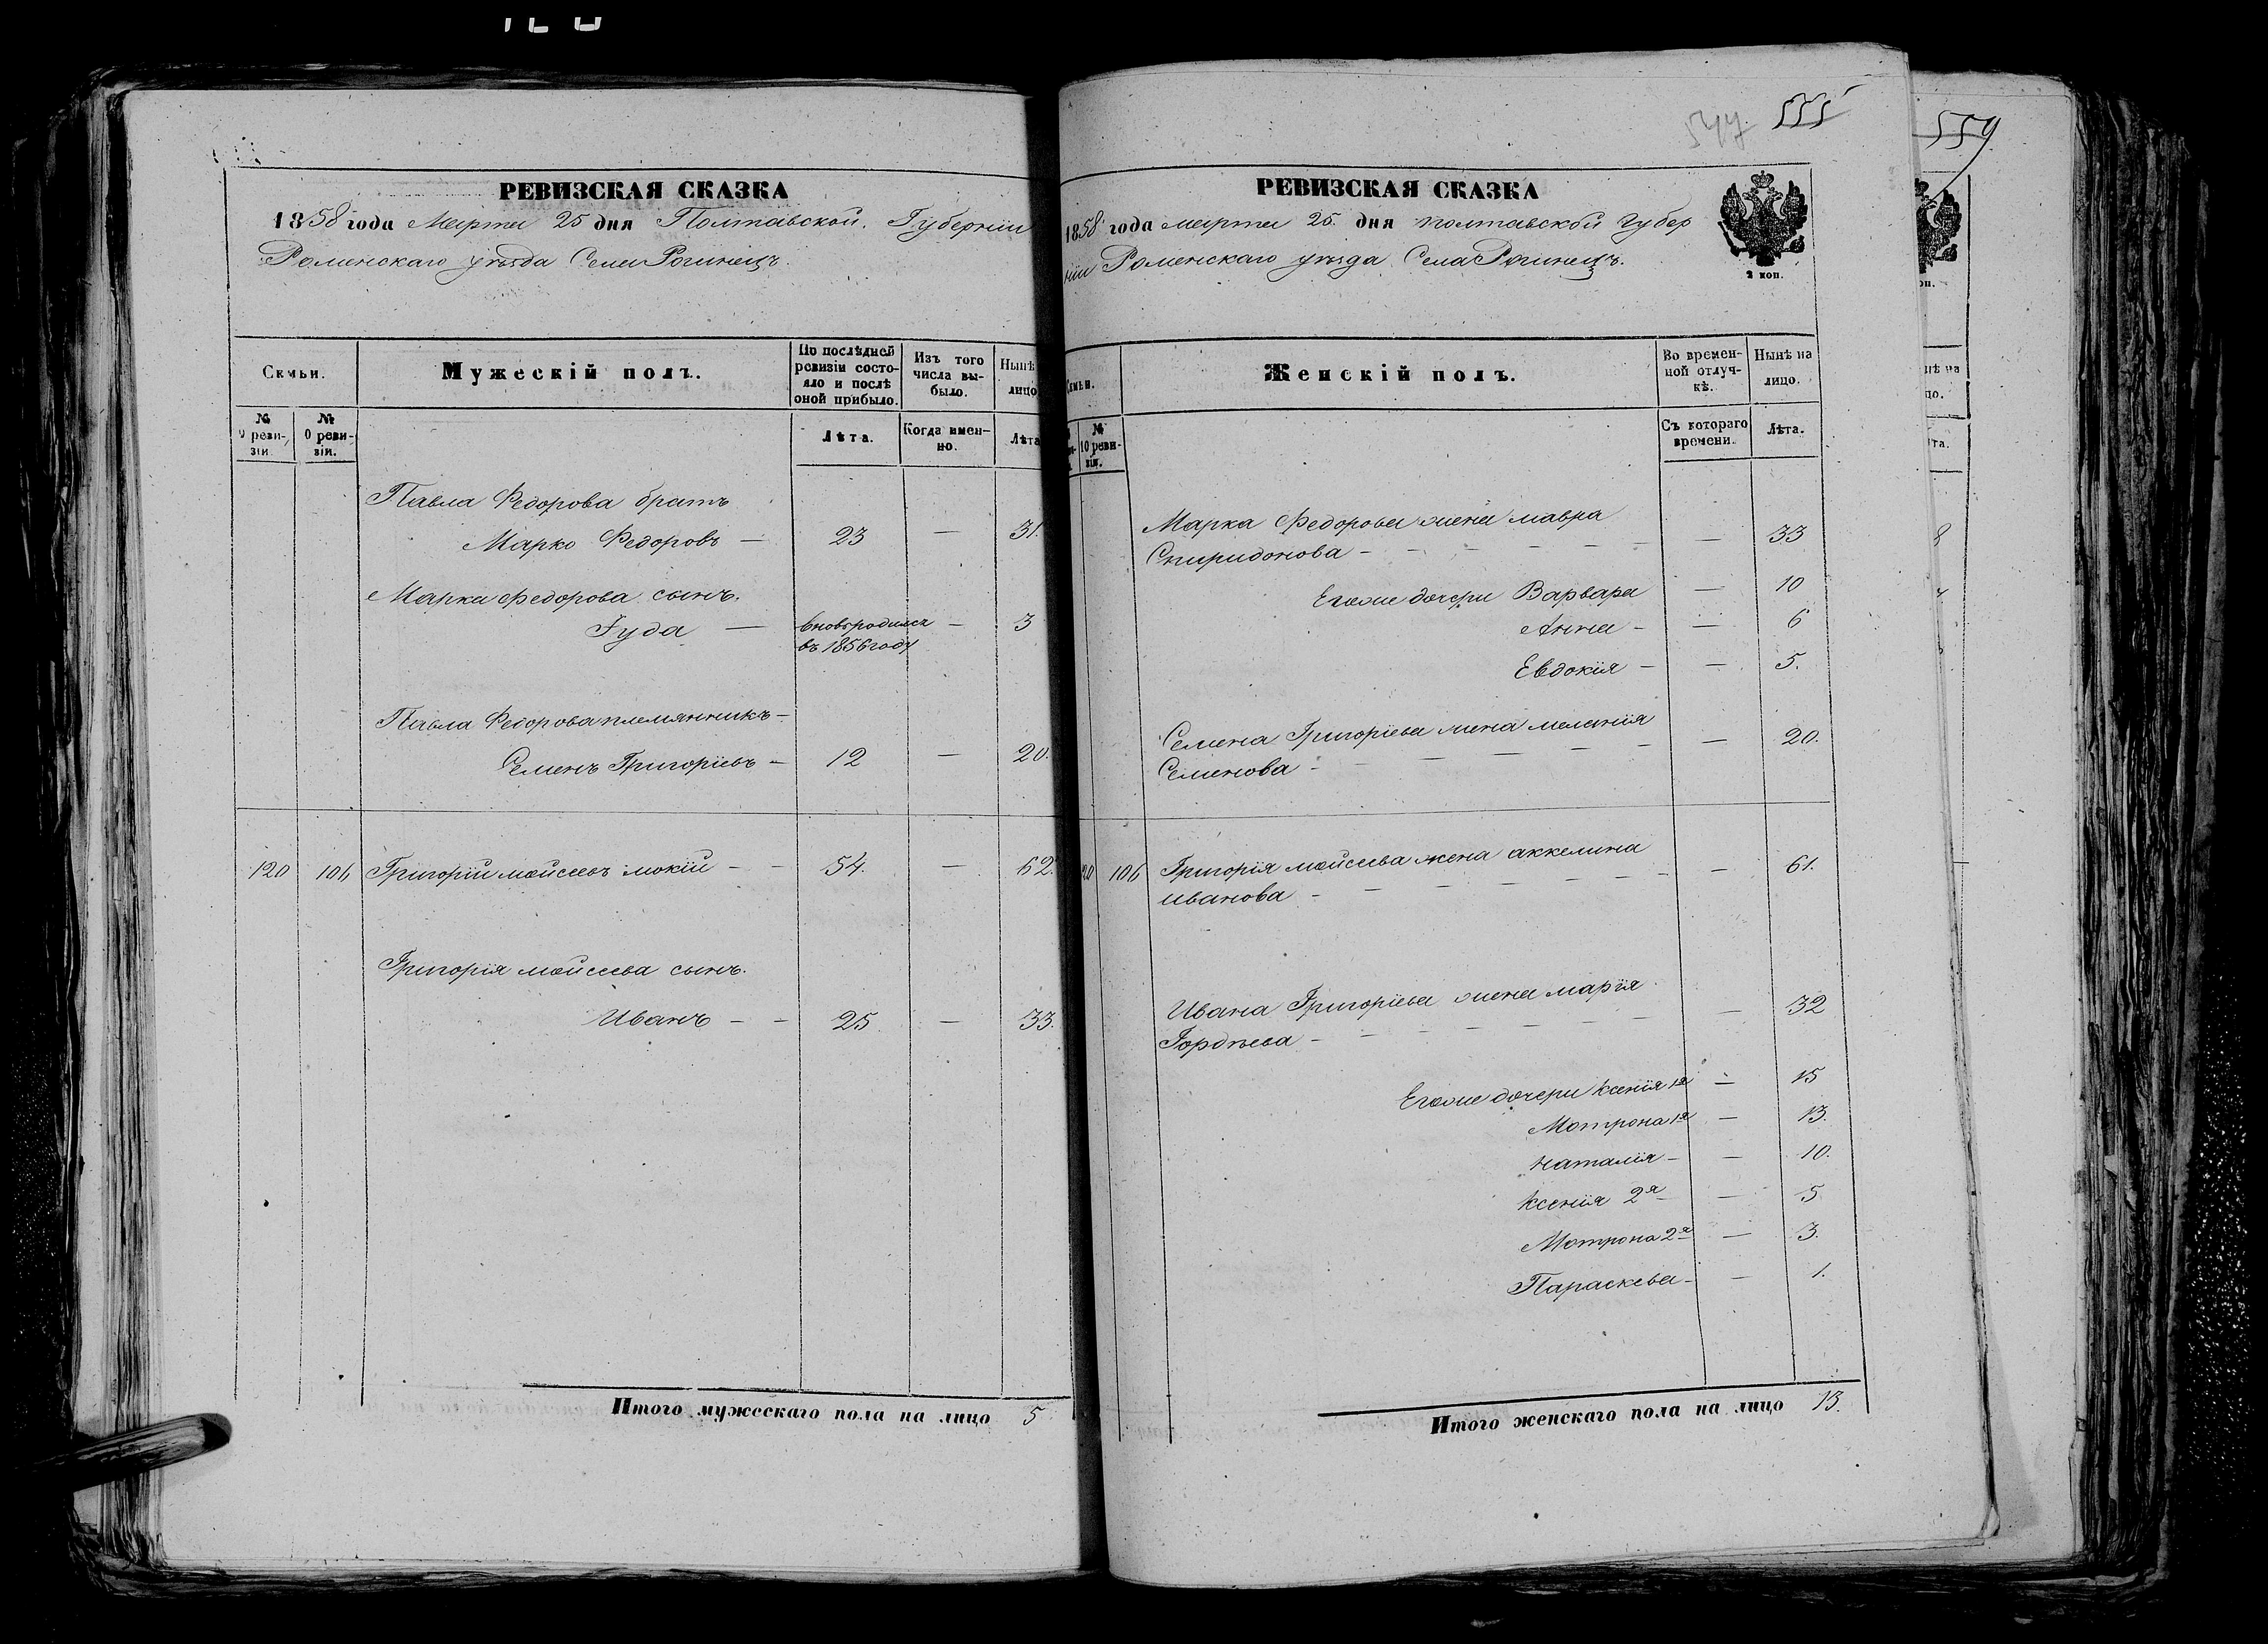 547 555
559
РЕВИЗСКАЯ СКАЗКА
1858 года Марта 25 дня Полтавской Губерніи
Роменскаго уѣзда Села Рогинецъ.
Семьи.
Мужескій полъ.
По послѣдней ревизіи состояло и послѣ оной прибыло.
Изъ того числа выбыло.
Нынѣ лицо
№ 9 ревизіи
№ 0 ревизіи.
Лѣта.
Когда именно.
Лѣта
Павла Федорова братъ
Марко Федоровъ — 23 — 31.
Марка Федорова сынъ.
Іуда — вновь родился — 3
въ 1856 году
Павла Федорова племянникъ —
Семенъ Григоріевъ — 12 — 20.
120 106 Григорій Мойсеевъ Мокій — — 54. — 62.
Григорія Мойсеева сынъ.
Иванъ — — 25 — 33.
Итого мужескаго пола на лицо 5
РЕВИЗСКАЯ СКАЗКА
1858 года марта 25. дня полтавской губер
ніи Роменскаго уѣзда Села Рогинецъ.
2 коп.
Семьи.
Женскій полъ.
Во временной отлучкѣ.
Нынѣ на лицо.
№ 10 ревизіи.
Съ котораго времени.
Лѣта.
Марка Федорова жена мавра
Спиридонова — — 33
Егоже дочери Варвара — 10
Анна — — 6
Евдокія — — 5.
Семена Григоріева жена меланія
Семенова — — 20.
120 106 Григорія мойсеева жена аккелина
иванова — — 61.
Ивана Григоріева жена марія
Гордѣева — — 32
Егоже дочери Ксенія 1я — 15
Мотрона 1я — 13.
Наталія — — 10.
Ксенія 2я — 5
Мотрона 2я — 3.
Параскева — — 1.
Итого женскаго пола на лицо 13.